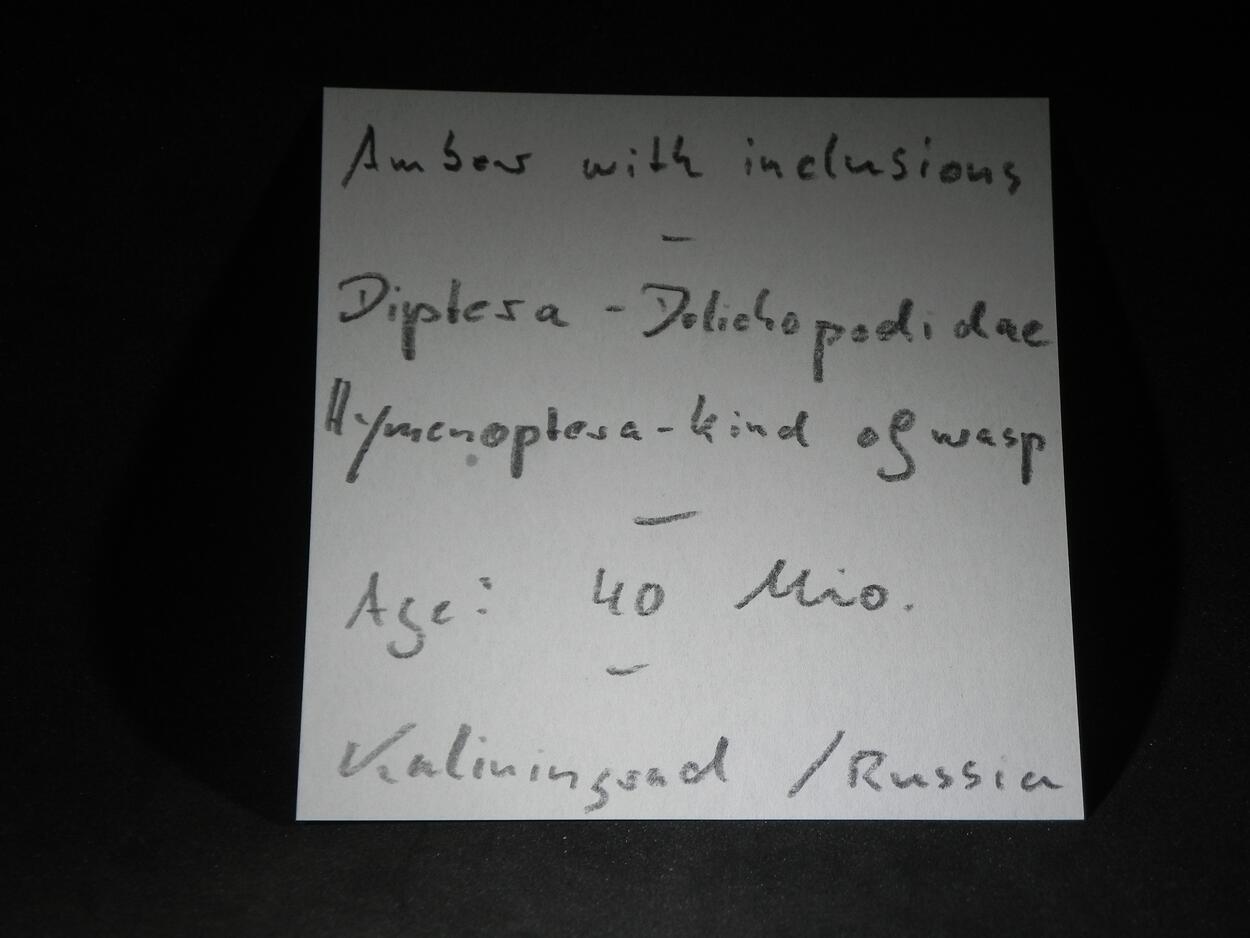 Amber with inclusions
-
Diptera - Dolichopodidae
Hymenoptera - kind of wasp
-
Age: 40 Mio.
-
Kaliningrad / Russia